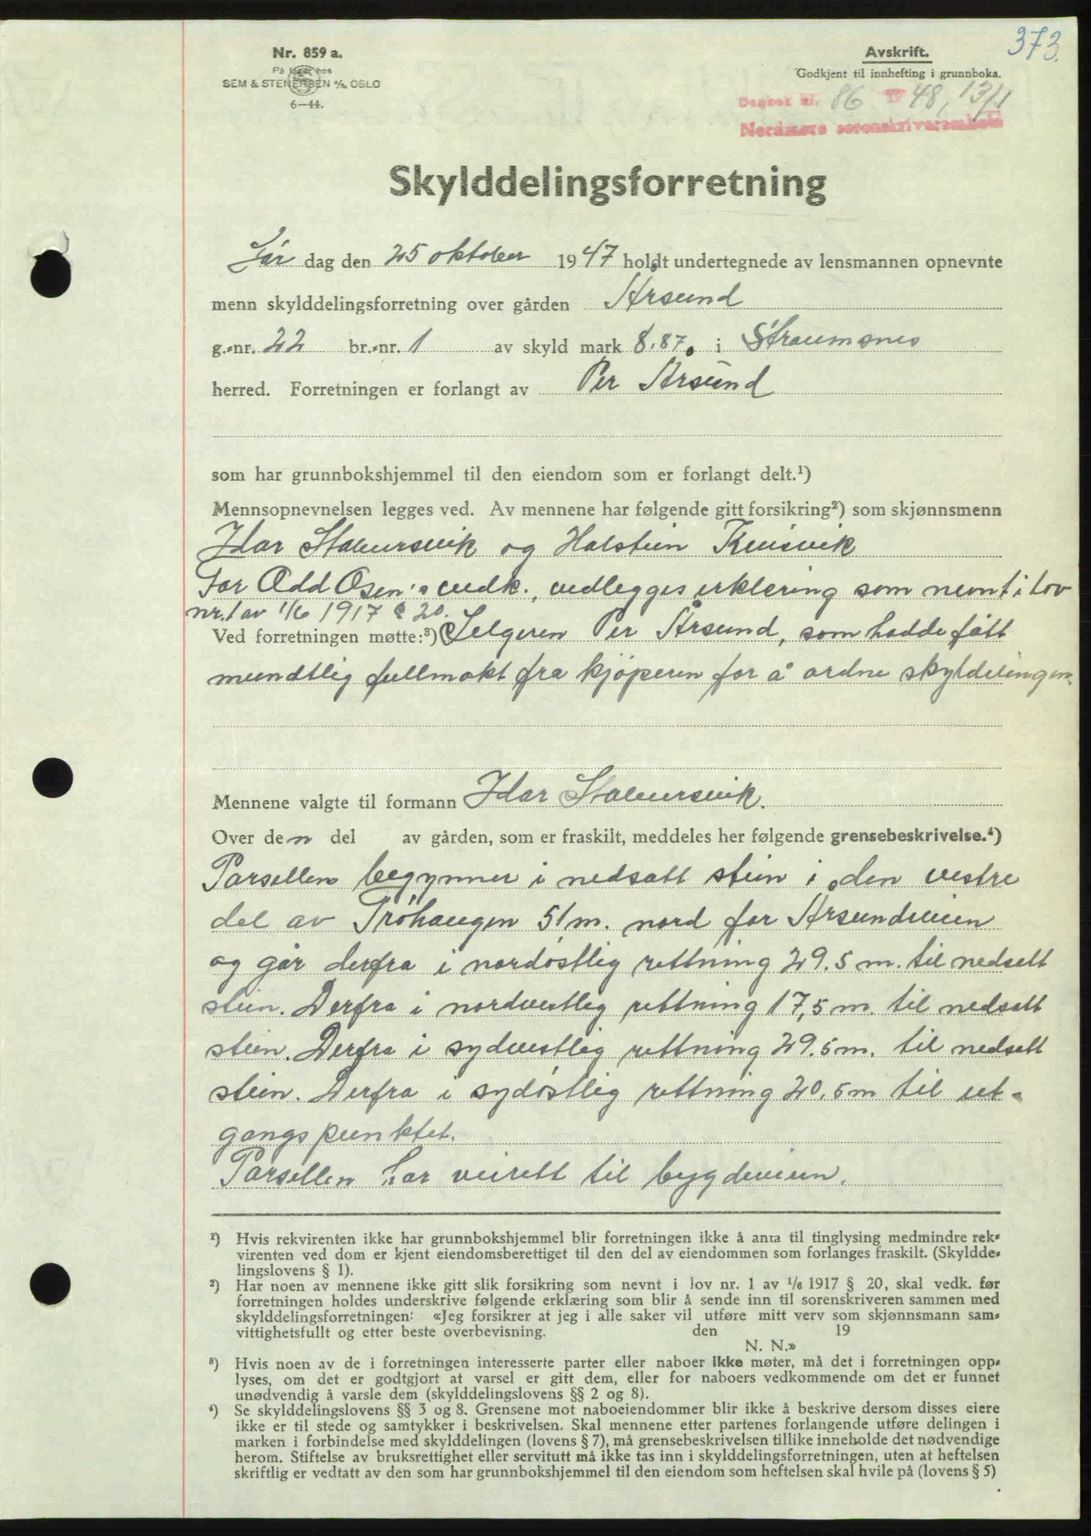 373.
Nr. 859 a.
På lager hos
SEM & STENERSEN A/S, OSLO
6—44.
Avskrift.
Godkjent til innhefting i grunnboka.
Dagbok nr. 86 19 48, 13/1
Nordmøre sorenskriverembete
Skylddelingsforretning
Lør dag den 25 oktober 1947 holdt undertegnede av lensmannen opnevnte
menn skylddelingsforretning over gården Årsund
g.-nr. 22 br.-nr. 1 av skyld mark 8.87. i Straumsnes
herred. Forretningen er forlangt av Per Årsund
som har grunnbokshjemmel til den eiendom som er forlangt delt.¹)
Mennsopnevnelsen legges ved. Av mennene har følgende gitt forsikring²) som skjønnsmenn
Idar Stabursvik og Halstein Kvisvik
For Odd Osen's vedk., vedlegges erklering som nevnt i lov
nr. 1 av 1/6 1917 § 20.
Ved forretningen møtte:³) Selgeren Per Årsund, som hadde fått
mundtlig fullmakt fra kjøperen for å ordne skyldelingen.
Mennene valgte til formann Idar Stabursvik.
Over den del av gården, som er fraskilt, meddeles her følgende grensebeskrivelse.⁴)
Parsellen begynner i nedsatt stein i den vestre
del av Tröhaugen 51 m. nord for Årsundveien
og går derfra i nordøstlig rettning 29.5 m. til nedsatt
stein. Derfra i nordvestlig rettning 17,5 m. til nedsatt
stein. Derfra i sydvestlig rettning 29.5 m. til nedsatt
stein. Derfra i sydøstlig rettning 20,5 m til ut-
gangspunktet.
Parsellen har veirett til bygdeveien.
¹) Hvis rekvirenten ikke har grunnbokshjemmel blir forretningen ikke å anta til tinglysing medmindre rek-
virenten ved dom er kjent eiendomsberettiget til den del av eiendommen som forlanges fraskilt. (Skyldde-
lingslovens § 1).
²) Har noen av mennene ikke gitt slik forsikring som nevnt i lov nr. 1 av 1/6 1917 § 20, skal vedk. før
forretningen holdes underskrive følgende erklæring som blir å sende inn til sorenskriveren sammen med
skylddelingsforretningen: «Jeg forsikrer at jeg i alle saker vil utføre mitt verv som skjønnsmann sam-
vittighetsfullt og etter beste overbevisning. den 19
N. N.»
³) Hvis noen av de i forretningen interesserte parter eller naboer ikke møter, må det i forretningen opp-
lyses, om det er godtgjort at varsel er gitt dem, eller for naboers vedkommende om det er funnet
unødvendig å varsle dem (skylddelingslovens §§ 2 og 8).
⁴) Se skylddelingslovens §§ 3 og 8. Grensene mot naboeiendommer blir ikke å beskrive dersom disses eiere
ikke er til stede og samtykker i beskrivelsen. Skal mennene etter partenes forlangende utføre delingen i
marken i forbindelse med skylddelingen (lovens § 7), må grensebeskrivelsen tillike inneholde det nødvendige
herom. Stiftelse av bruksrettighet eller servitutt må ikke tas inn i skylddelingsforretningen, uten at heftelsen
skriftlig er vedtatt av den som har grunnbokshjemmel til den eiendom som heftelsen skal hvile på (lovens § 5)